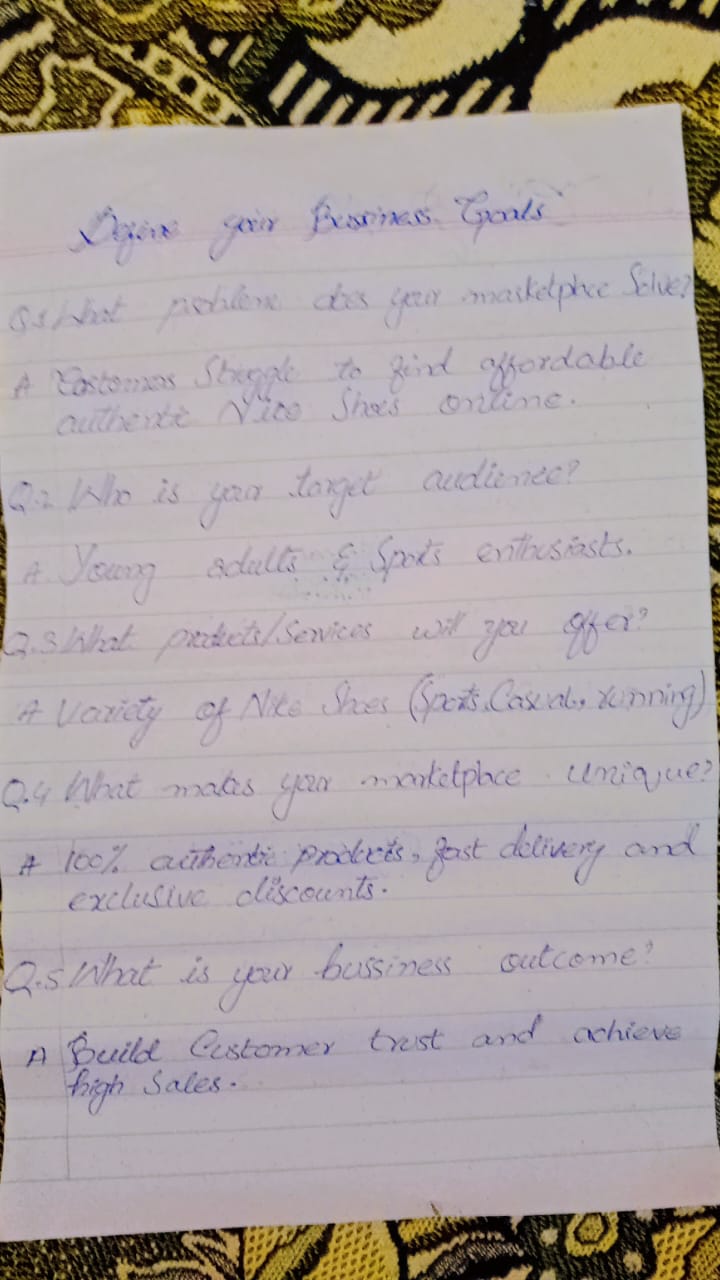 Define your Bussiness Goals
Q.1 What problem does your marketplace Solve?
A Customers Struggle to find affordable
authentic Nike Shoes online.
Q.2 Who is your target audience?
A Young adults & Sports enthusiasts.
Q.3 What products/Services will you offer?
A Variety of Nike Shoes (Sports, Casual, running)
Q.4 What makes your marketplace unique?
A 100% authentic products, fast delivery and
exclusive discounts.
Q.5 What is your bussiness outcome?
A Build Customer trust and achieve
high Sales.